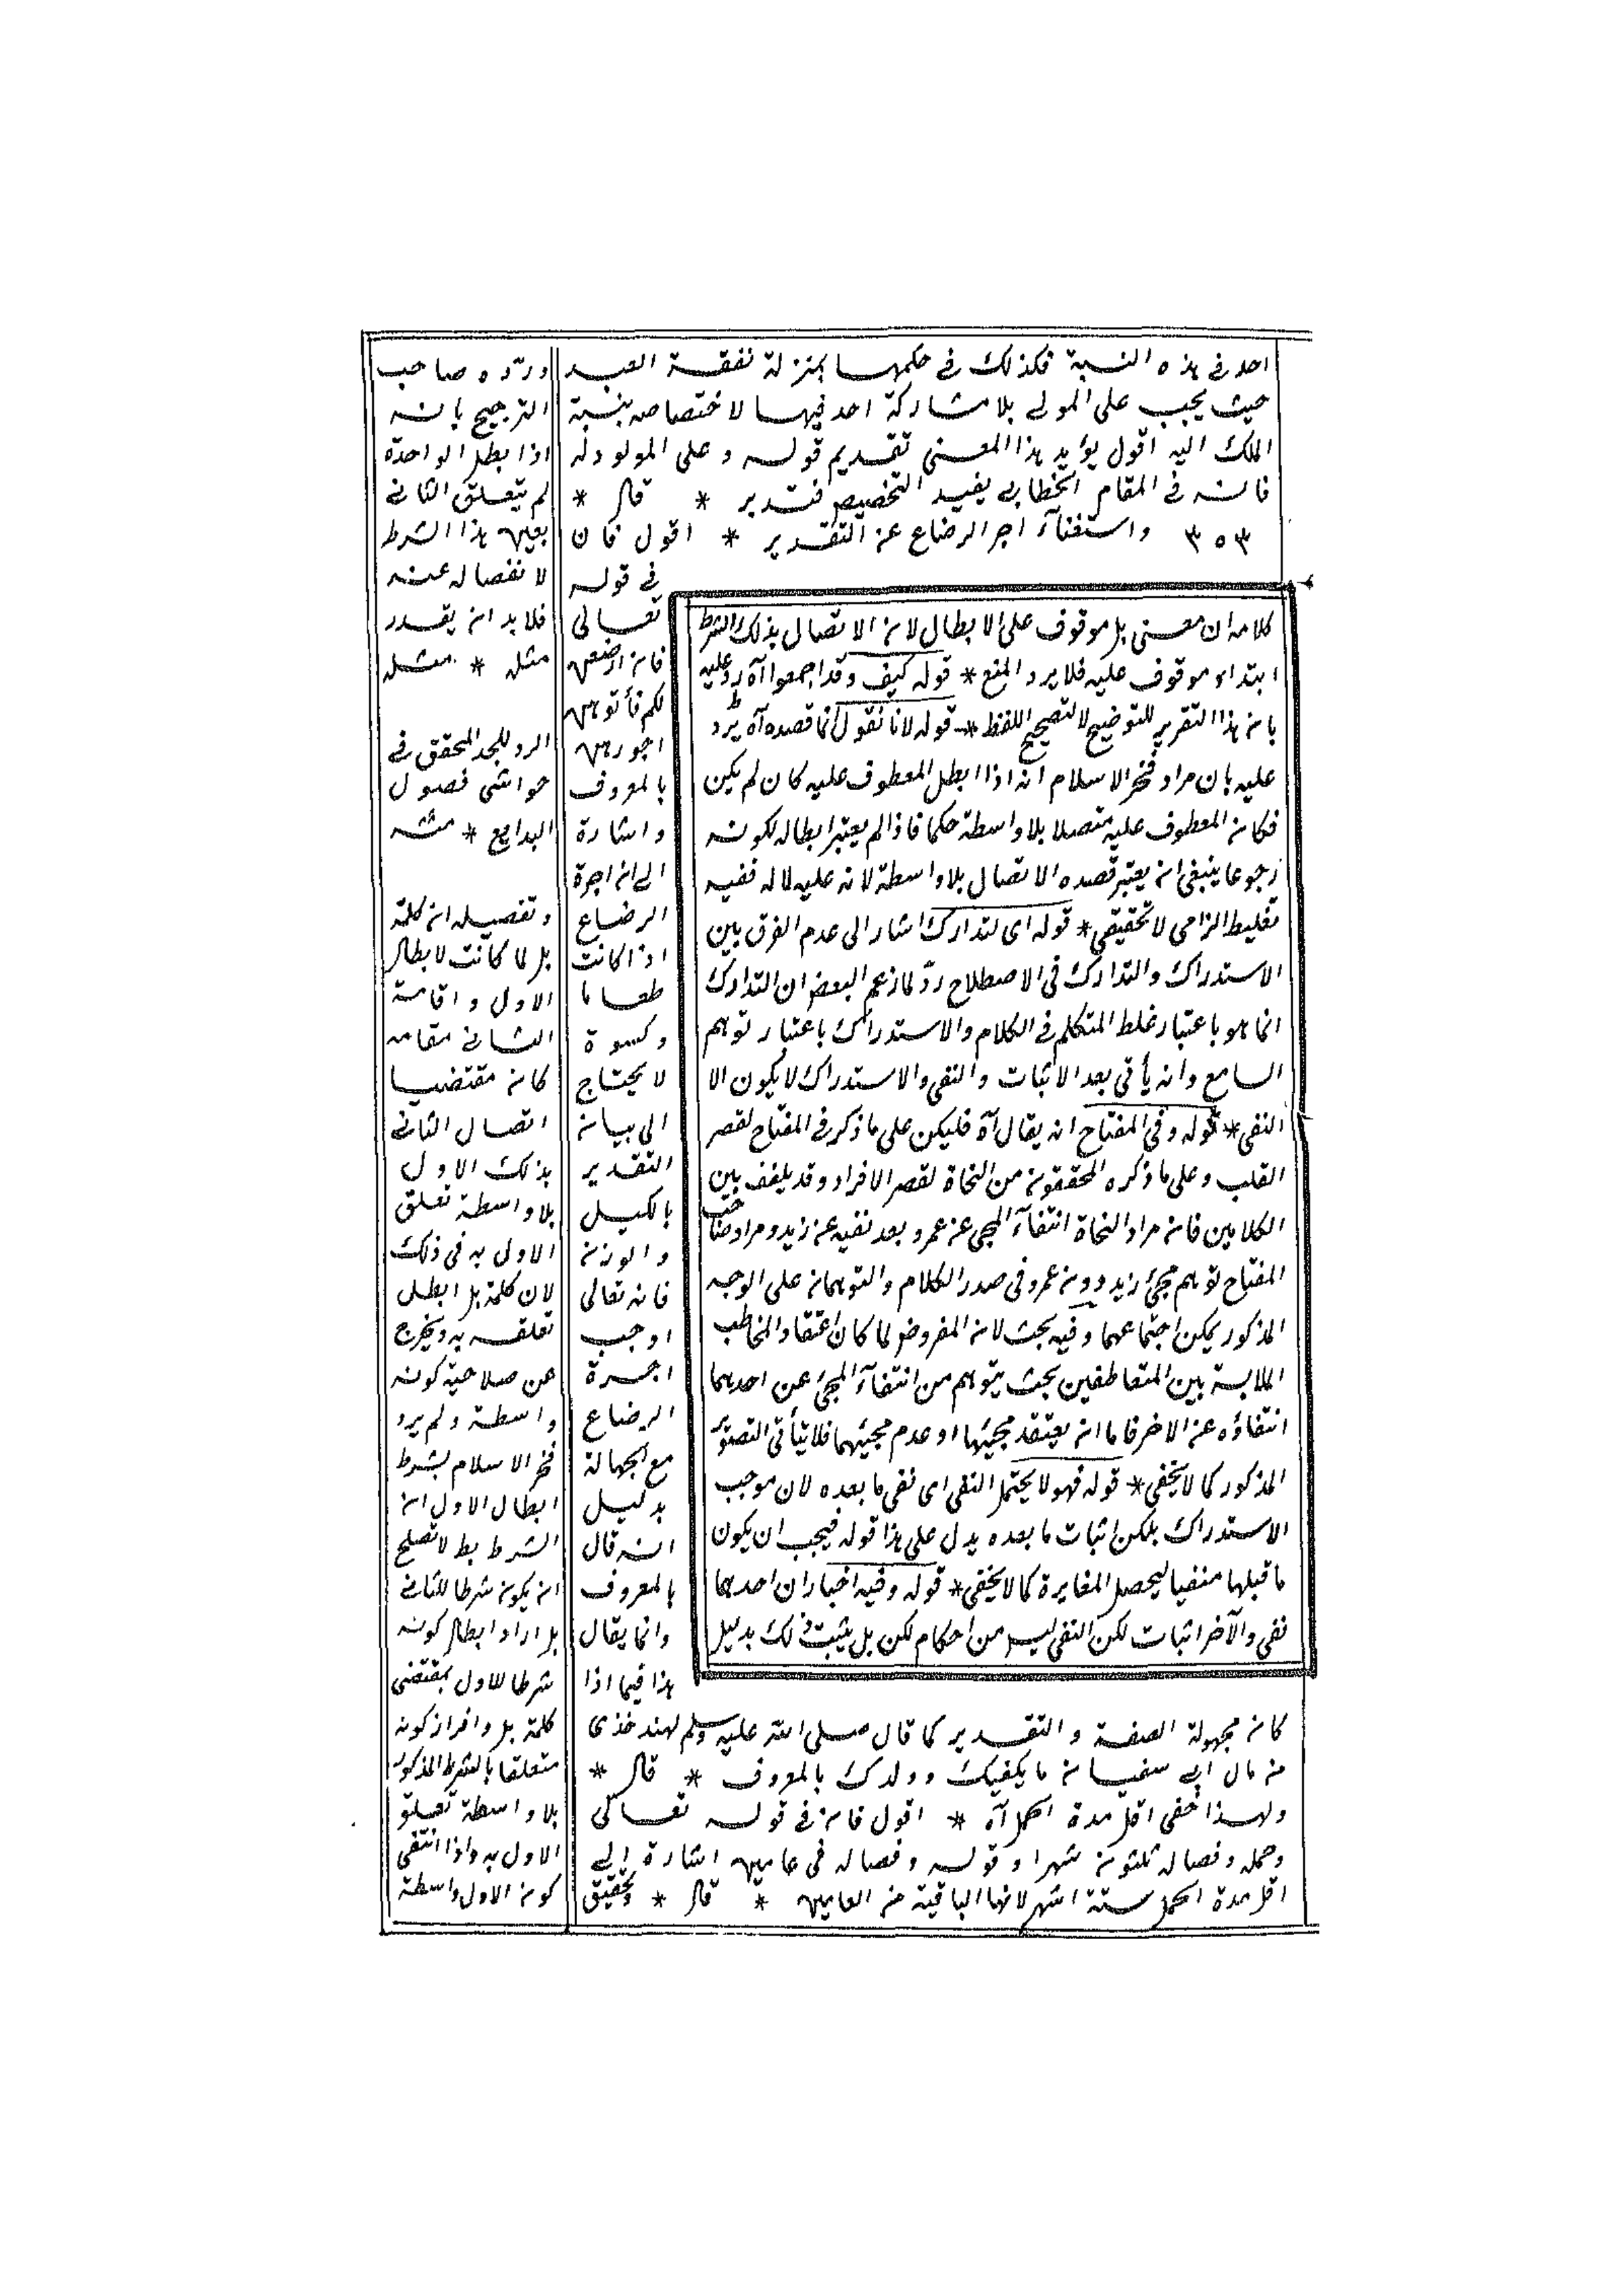 احد فى هذه النسبة فكذلك فى حكمها بمنزلة نفقة العبد
حيث يجب على المولى بلا مشاركة احد فيها لاختصاصه بنسبة
الملك اليه اقول يؤيد هذا المعنى تقديم قوله وعلى المولود له
فانه فى المقام الخطابى يفيد التخصيص فتدبر * قال *
٣٥٣ واستغناء اجر الرضاع عن التقدير * اقول فان
فى قوله
تعالى
فان ارضعن
لكم فأتوهن
اجورهن
بالمعروف
واشارة
الى ان اجرة
الرضاع
اذا كانت
طعاما
وكسوة
لا يحتاج
الى بيان
التقدير
بالكيل
والوزن
فانه تعالى
اوجب
اجرة
الرضاع
مع الجهالة
بدليل
انه قال
بالمعروف
وانما يقال
هذا فيما اذا
كان مجهولة الصفة والتقدير كما قال صلى الله عليه وسلم لهند خذى
من مال ابى سفيان ما يكفيك وولدك بالمعروف * قال *
ولهذا خفى اقل مدة الحمل آه * اقول فان فى قوله تعالى
وحمله وفصاله ثلثون شهرا وقوله وفصاله فى عامين اشارة الى
اقل مدة الحمل ستة اشهر لانها الباقية من العامين * قال * وتحقيق
كلامه ان معنى بل موقوف على الابطال لان الاتصال بذلك الشرط
ابتداء موقوف عليه فلا يرد المنع * قوله كيف وقد اجمعوا آه رد عليه
بان هذا التقرير للتوضيح لا لتصحيح اللفظ * قوله لانا نقول انما قصده آه يرد
عليه بان مراد فخر الاسلام انه اذا ابطل المعطوف عليه كان لم يكن
فكان المعطوف عليه متصلا بلا واسطة حكما فاذا لم يعتبر ابطاله لكونه
رجوعا ينبغى ان يعتبر قصده الاتصال بلا واسطة لانه عليه لا له ففيه
تغليط الزامى لا تحقيقى * قوله اى لتدارك اشار الى عدم الفرق بين
الاستدراك والتدارك فى الاصطلاح رد لما زعم البعض ان التدارك
انما هو باعتبار غلط المتكلم فى الكلام والاستدراك باعتبار توهم
السامع وانه يأتى بعد الاثبات والنفى والاستدراك لا يكون الا
النفى * قوله وفى المفتاح انه يقال آه فليكن على ما ذكر فى المفتاح لقصر
القلب وعلى ما ذكره المحققون من النحاة لقصر الافراد وقد يلفف بين
الكلامين فان مراد النحاة انتفاء المجئ عن عمرو بعد نفيه عن زيد ومراد صاحب
المفتاح توهم مجئ زيد دون عمرو فى صدر الكلام والتوهمان على الوجه
المذكور يمكن اجتماعهما وفيه بحث لان المفروض لما كان اعتقاد المخاطب
الملابسة بين المتعاطفين بحيث يتوهم من انتفاء المجئ عن احدهما
انتفاؤه عن الاخر فاما ان يعتقد مجيئهما او عدم مجيئهما فلا يتأتى التصور
المذكور كما لا يخفى * قوله فهو لا يحتمل النفى اى نفى ما بعده لان موجب
الاستدراك بلكن اثبات ما بعده يدل على هذا قوله فيجب ان يكون
ما قبلها منفيا ليحصل المغايرة كما لا يخفى * قوله وفيه اخبار ان احدهما
نفى والآخر اثبات لكن النفى ليس من احكام لكن بل يثبت ذلك بدليل
ورده صاحب
الترجيح بانه
اذا بطل الواحدة
لم يتعلق الثانى
بعين هذا الشرط
لانفصاله عنه
فلا بد ان يقدر
مثله * مثله
الرد للجد المحقق فى
حواشى فصول
البدايع * منه
وتفصيله ان كلمة
بل لما كانت لابطال
الاول واقامة
الثانى مقامه
كان مقتضيا
اتصال الثانى
بذلك الاول
بلا واسطة تعلق
الاول به فى ذلك
لان كلمة بل ابطل
تعلقه به ويخرج
عن صلاحية كونه
واسطة ولم يرد
فخر الاسلام بشرط
ابطال الاول ان
الشرط بط لا تصلح
ان يكون شرطا للثانى
بل اراد ابطال كونه
شرطا للاول بمقتضى
كلمة بل وافراز كونه
متعلقا بالشرط المذكور
بلا واسطة تعلق
الاول به واذا انتفى
كون الاول واسطة